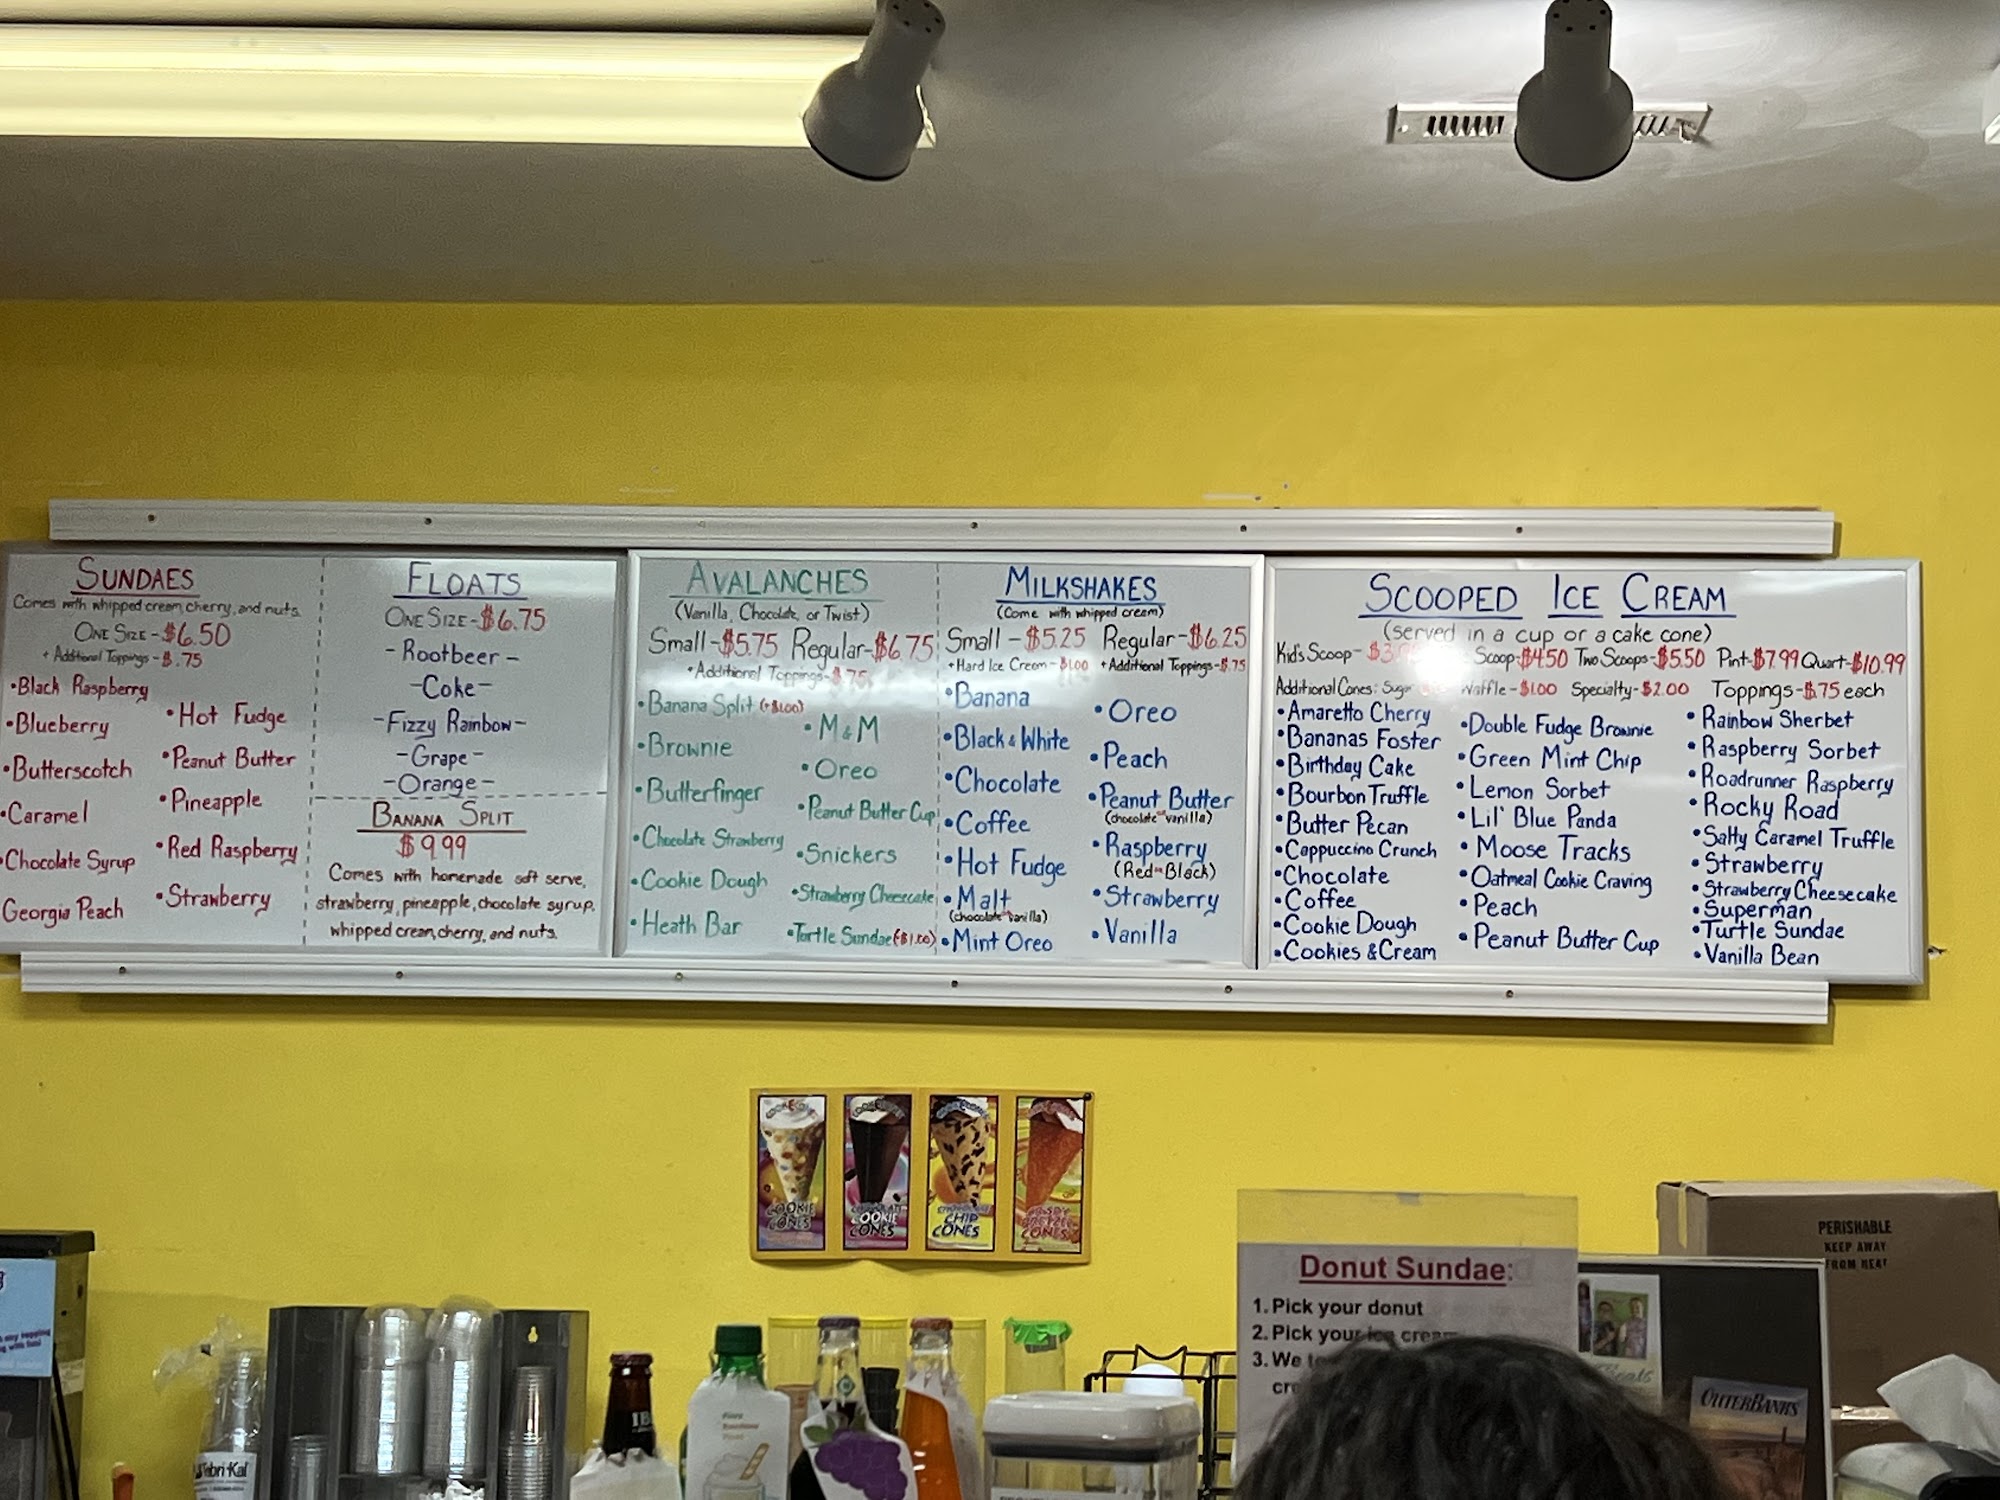 SUNDAES
Comes with whipped cream, cherry, and nuts.
ONE SIZE - $6.50
+ Additional Toppings - $.75
•Black Raspberry
•Blueberry
•Butterscotch
•Caramel
•Chocolate Syrup
Georgia Peach
•Hot Fudge
•Peanut Butter
•Pineapple
•Red Raspberry
•Strawberry
FLOATS
ONE SIZE - $6.75
- Rootbeer -
- Coke -
- Fizzy Rainbow -
- Grape -
- Orange -
BANANA SPLIT
$9.99
Comes with homemade soft serve,
strawberry, pineapple, chocolate syrup,
whipped cream, cherry, and nuts.
AVALANCHES
(Vanilla, Chocolate, or Twist)
Small - $5.75 Regular - $6.75
+ Additional Toppings - $.75
•Banana Split (+$1.00)
•Brownie
•Butterfinger
•Chocolate Strawberry
•Cookie Dough
•Heath Bar
•M&M
•Oreo
•Peanut Butter Cup
•Snickers
•Strawberry Cheesecake
•Turtle Sundae (+$1.00)
MILKSHAKES
(Come with whipped cream)
Small - $5.25 Regular - $6.25
+Hard Ice Cream - $1.00 +Additional Toppings - $.75
•Banana
•Black & White
•Chocolate
•Coffee
•Hot Fudge
•Malt
(chocolate or vanilla)
•Mint Oreo
•Oreo
•Peach
•Peanut Butter
(chocolate or vanilla)
•Raspberry
(Red or Black)
•Strawberry
•Vanilla
SCOOPED ICE CREAM
(served in a cup or a cake cone)
Kid's Scoop - Scoop - $4.50 Two Scoops - $5.50 Pint - $7.99 Quart - $10.99
Additional Cones: Sugar Waffle - $1.00 Specialty - $2.00 Toppings - $.75 each
•Amaretto Cherry
•Bananas Foster
•Birthday Cake
•Bourbon Truffle
•Butter Pecan
•Cappuccino Crunch
•Chocolate
•Coffee
•Cookie Dough
•Cookies & Cream
•Double Fudge Brownie
•Green Mint Chip
•Lemon Sorbet
•Lil' Blue Panda
•Moose Tracks
•Oatmeal Cookie Craving
•Peach
•Peanut Butter Cup
•Rainbow Sherbet
•Raspberry Sorbet
•Roadrunner Raspberry
•Rocky Road
•Salty Caramel Truffle
•Strawberry
•Strawberry Cheesecake
•Superman
•Turtle Sundae
•Vanilla Bean
COOKIE
CONES
COOKIE
CONES
CHIP
CONES
CONES
Donut Sundae:
1. Pick your donut
2. Pick your ice cream
3. We
PERISHABLE
KEEP AWAY
FROM HEAT
OUTERBANKS
Fabri-Kal